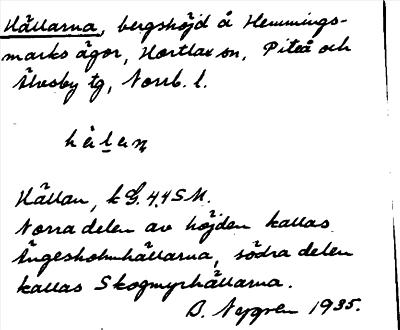 Hällarna, bergshöjd å Hemmings-
marks ägor, Hortlax sn, Piteå och
Älvsby tg, Norrb. l.
Hällan, k G. 4,4 S H.
Norra delen av höjden kallas
Ängesholmhällarna, södra delen
kallas Skogmyrhällarna.
B. Nygren 1935.